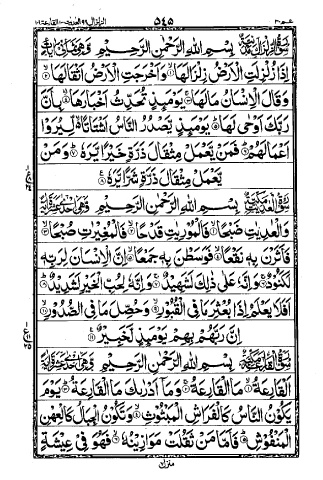 ٥٤٥
بِسْمِ اللهِ الرَّحْمٰنِ الرَّحِيْمِ
اِذَا زُلْزِلَتِ الْاَرْضُ زِلْزَالَهَا ۝١ وَاَخْرَجَتِ الْاَرْضُ اَثْقَالَهَا ۝٢
وَقَالَ الْاِنْسَانُ مَا لَهَا ۝٣ يَوْمَئِذٍ تُحَدِّثُ اَخْبَارَهَا ۝٤ بِاَنَّ
رَبَّكَ اَوْحٰى لَهَا ۝٥ يَوْمَئِذٍ يَّصْدُرُ النَّاسُ اَشْتَاتًا لِّيُرَوْا
اَعْمَالَهُمْ ۝٦ فَمَنْ يَّعْمَلْ مِثْقَالَ ذَرَّةٍ خَيْرًا يَّرَهٗ ۝٧ وَمَنْ
يَّعْمَلْ مِثْقَالَ ذَرَّةٍ شَرًّا يَّرَهٗ ۝٨
بِسْمِ اللهِ الرَّحْمٰنِ الرَّحِيْمِ
وَالْعٰدِيٰتِ ضَبْحًا ۝١ فَالْمُوْرِيٰتِ قَدْحًا ۝٢ فَالْمُغِيْرٰتِ صُبْحًا ۝٣
فَاَثَرْنَ بِهٖ نَقْعًا ۝٤ فَوَسَطْنَ بِهٖ جَمْعًا ۝٥ اِنَّ الْاِنْسَانَ لِرَبِّهٖ
لَكَنُوْدٌ ۝٦ وَاِنَّهٗ عَلٰى ذٰلِكَ لَشَهِيْدٌ ۝٧ وَاِنَّهٗ لِحُبِّ الْخَيْرِ لَشَدِيْدٌ ۝٨
اَفَلَا يَعْلَمُ اِذَا بُعْثِرَ مَا فِى الْقُبُوْرِ ۝٩ وَحُصِّلَ مَا فِى الصُّدُوْرِ ۝١٠
اِنَّ رَبَّهُمْ بِهِمْ يَوْمَئِذٍ لَّخَبِيْرٌ ۝١١
بِسْمِ اللهِ الرَّحْمٰنِ الرَّحِيْمِ
اَلْقَارِعَةُ ۝١ مَا الْقَارِعَةُ ۝٢ وَمَآ اَدْرٰىكَ مَا الْقَارِعَةُ ۝٣ يَوْمَ
يَكُوْنُ النَّاسُ كَالْفَرَاشِ الْمَبْثُوْثِ ۝٤ وَتَكُوْنُ الْجِبَالُ كَالْعِهْنِ
الْمَنْفُوْشِ ۝٥ فَاَمَّا مَنْ ثَقُلَتْ مَوَازِيْنُهٗ ۝٦ فَهُوَ فِيْ عِيْشَةٍ
منزل